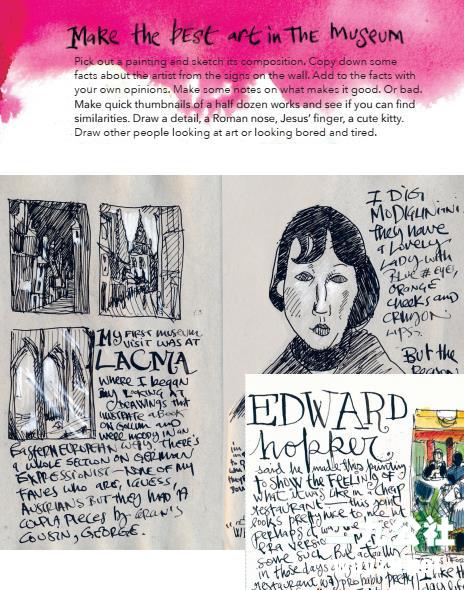 Make the best art in the Museum
Pick out a painting and sketch its composition. Copy down some
facts about the artist from the signs on the wall. Add to the facts with
your own opinions. Make some notes on what makes it good. Or bad.
Make quick thumbnails of a half dozen works and see if you can find
similarities. Draw a detail, a Roman nose, Jesus' finger, a cute kitty.
Draw other people looking at art or looking bored and tired.
My first museum
visit was at
LACMA
where I began
by looking at
drawings that
illustrate a book
on Golem and
were moody in an
Eastern European way. There's
a whole section on German
Expressionist – none of my
faves
but they had a
couple pieces by
cousin, George.
I dig
they have
a lovely
lady with
blue eyes,
orange
cheeks and
crimson
lips.
But the
EDWARD
hopker
said he made this painting
to show the feeling of
what it was like in a cheap
restaurant – this joint
looks pretty nice to me but
perhaps it was
era
some such. But actually
in those days
restaurant was probably pretty